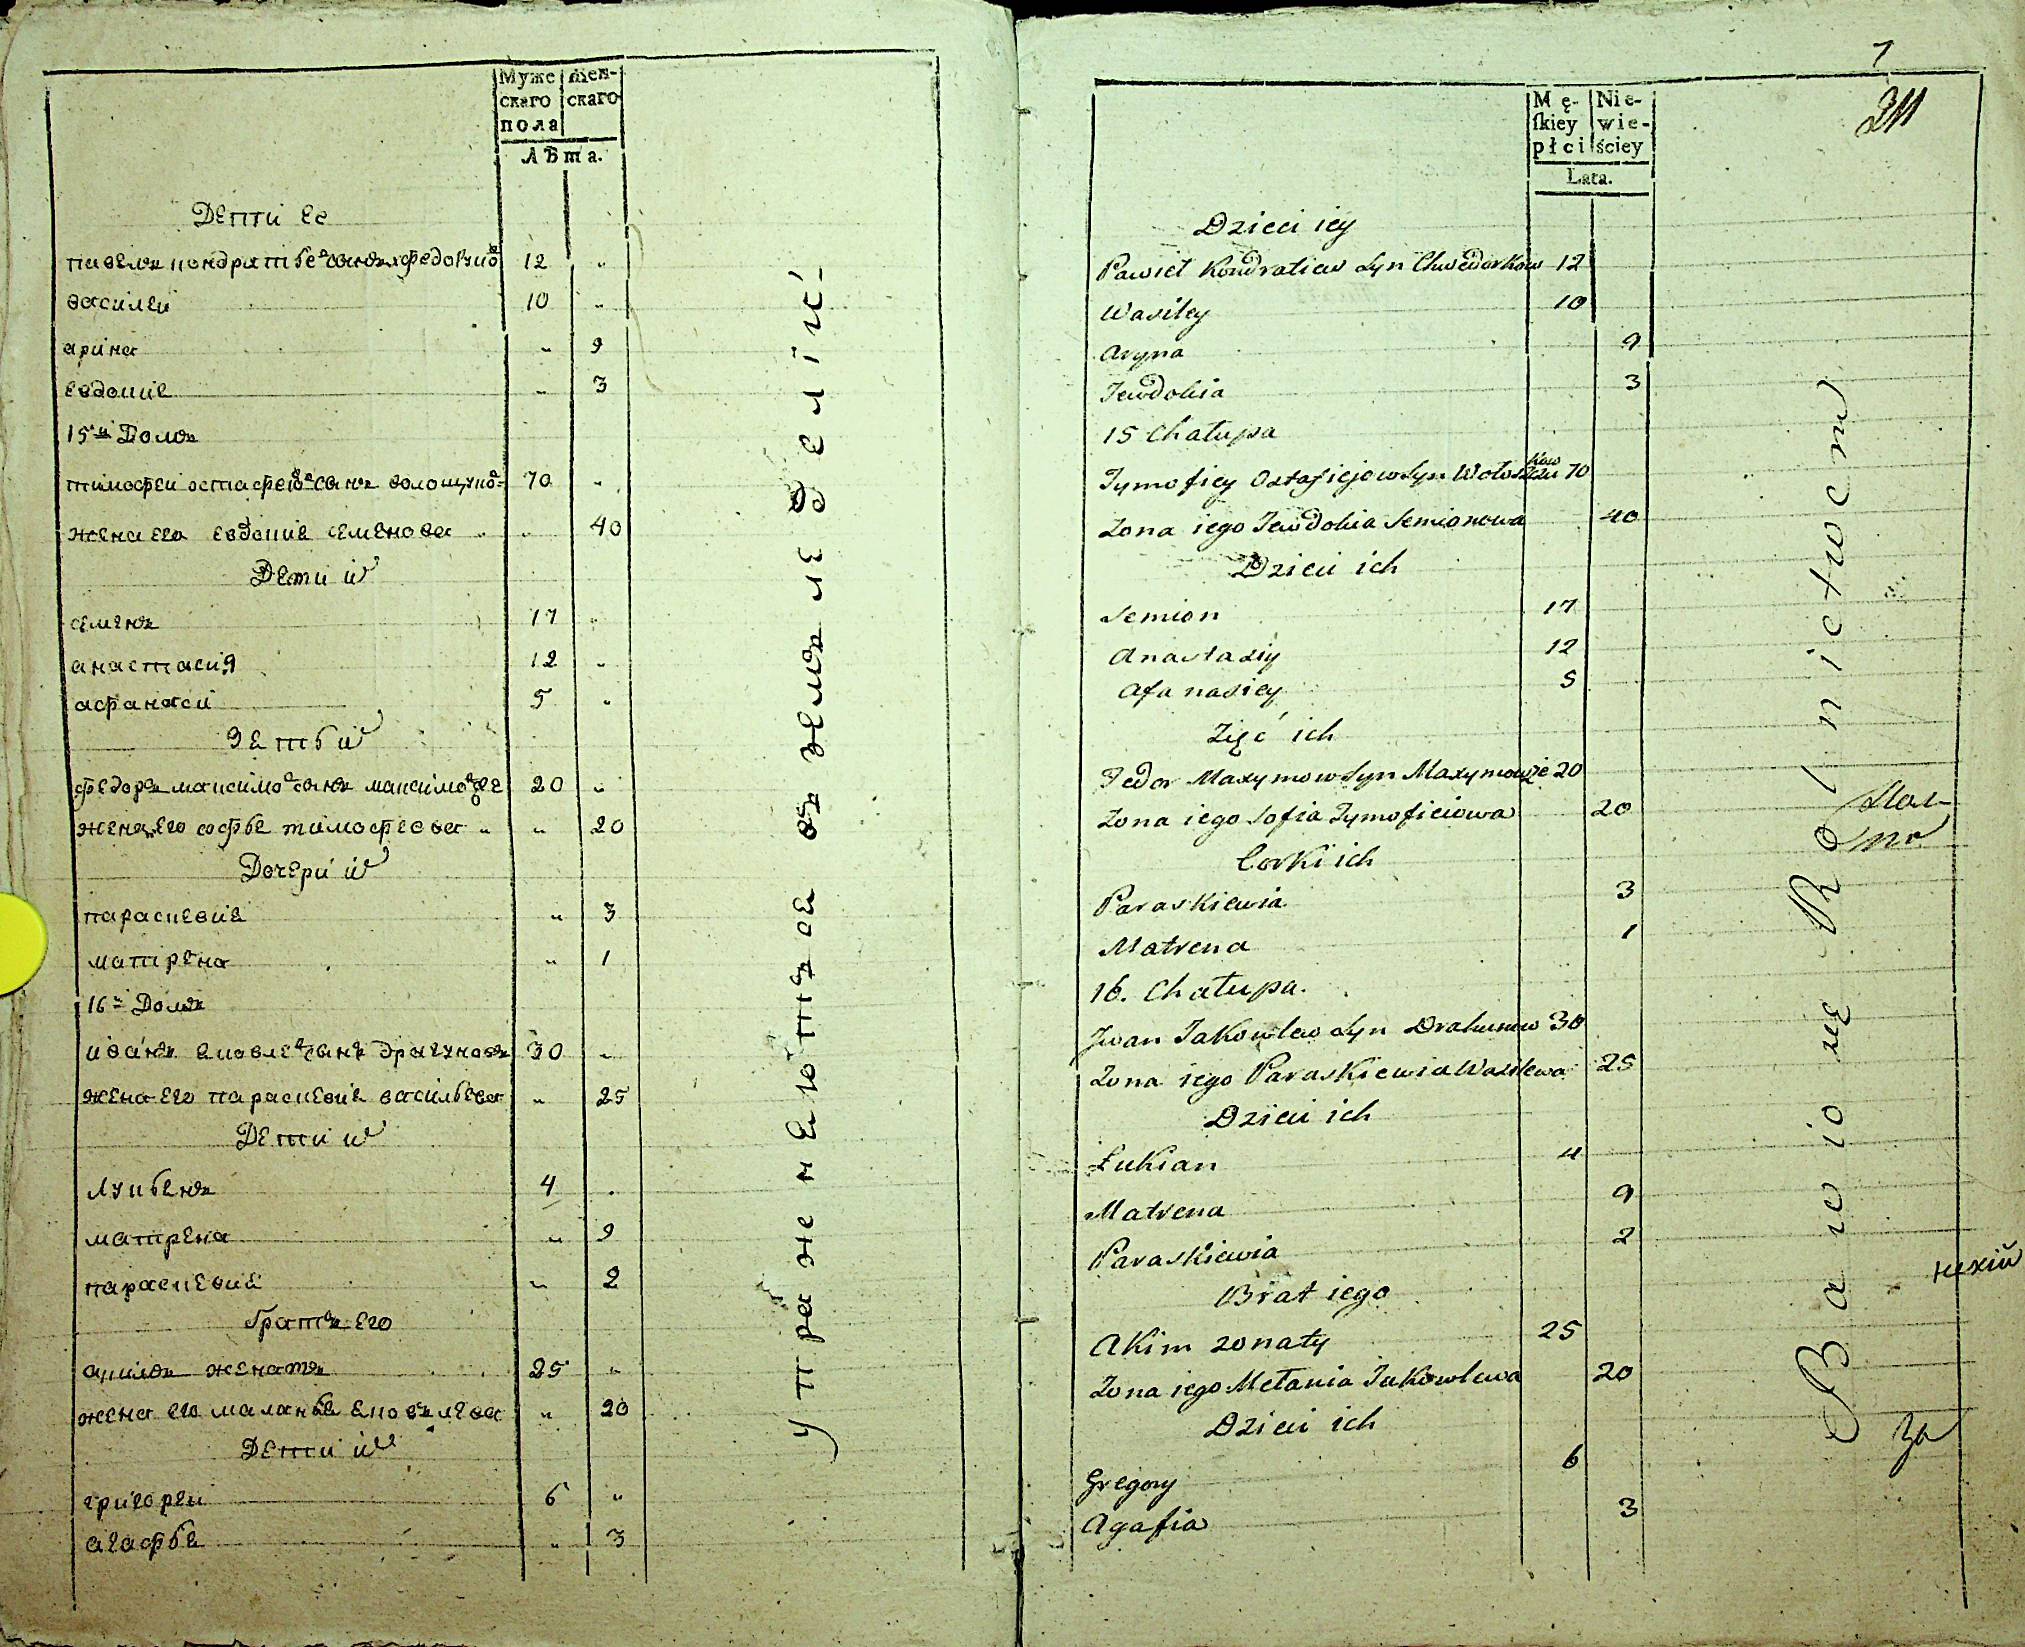 Муже
скаго
пола
Жен-
скаго
Лѣта.
Дети ее
павелъ кондратьевъ сынъ федоркиовъ 12 "
василеи 10 "
арина " 9
евдокие " 3
15й Домъ
тимофеи остафеевъ сынъ волощуковъ 70 "
жена его евдокие семенова " 40
Дети их
семенъ 17 "
анастасия 12 "
афанаси 5 "
Зеть их
федоръ максимовъ сынъ максимов 20 "
жена его софье тимофеева " 20
Дочери их
параскевие " 3
матрена " 1
16й Домъ
иванъ яковлевъ сынъ драгуновъ 30 "
жена его параскевие васильева " 25
Дети их
лукьенъ 4 "
матрена " 9
параскевие " 2
братъ его
акимъ женатъ 25 "
жена его маланье яковлева " 20
Дети их
григореи 6 "
агафье " 3
упражнеютъсе въ земледеліи
7
211
Mę-
ſkiey
płci
Nie-
wie-
ściey
Lata.
Dzieci iey
Paweł Kondratiew Syn Chwedorkow 12
Wasiley 10
Aryna 9
Jewdokia 3
15 Chałupa
Tymofiey Ostafiejow Syn Wołoszczukow 70
Zona iego Jewdokia Semionowa 40
Dzieci ich
Semion 17
Anastaziy 12
Afanasiey 5
Zięć ich
Fedor Maxymow Syn Maxymowże 20
Zona iego Sofia Tymoficiowa 20
Corki ich
Paraskiewia 3
Matrena 1
16. Chałupa.
Jwan Jakowlew Syn Drahunow 30
Zona iego Paraskiewia Wasilewa 25
Dzieci ich
Łukian 4
Matrena 9
Paraskiewia 2
Brat iego
Akim zonaty 25
Zona iego Mełania Jakowlewa 20
Dzieci ich
Gregory 6
Agafia 3
Bawio się Rolnictwem